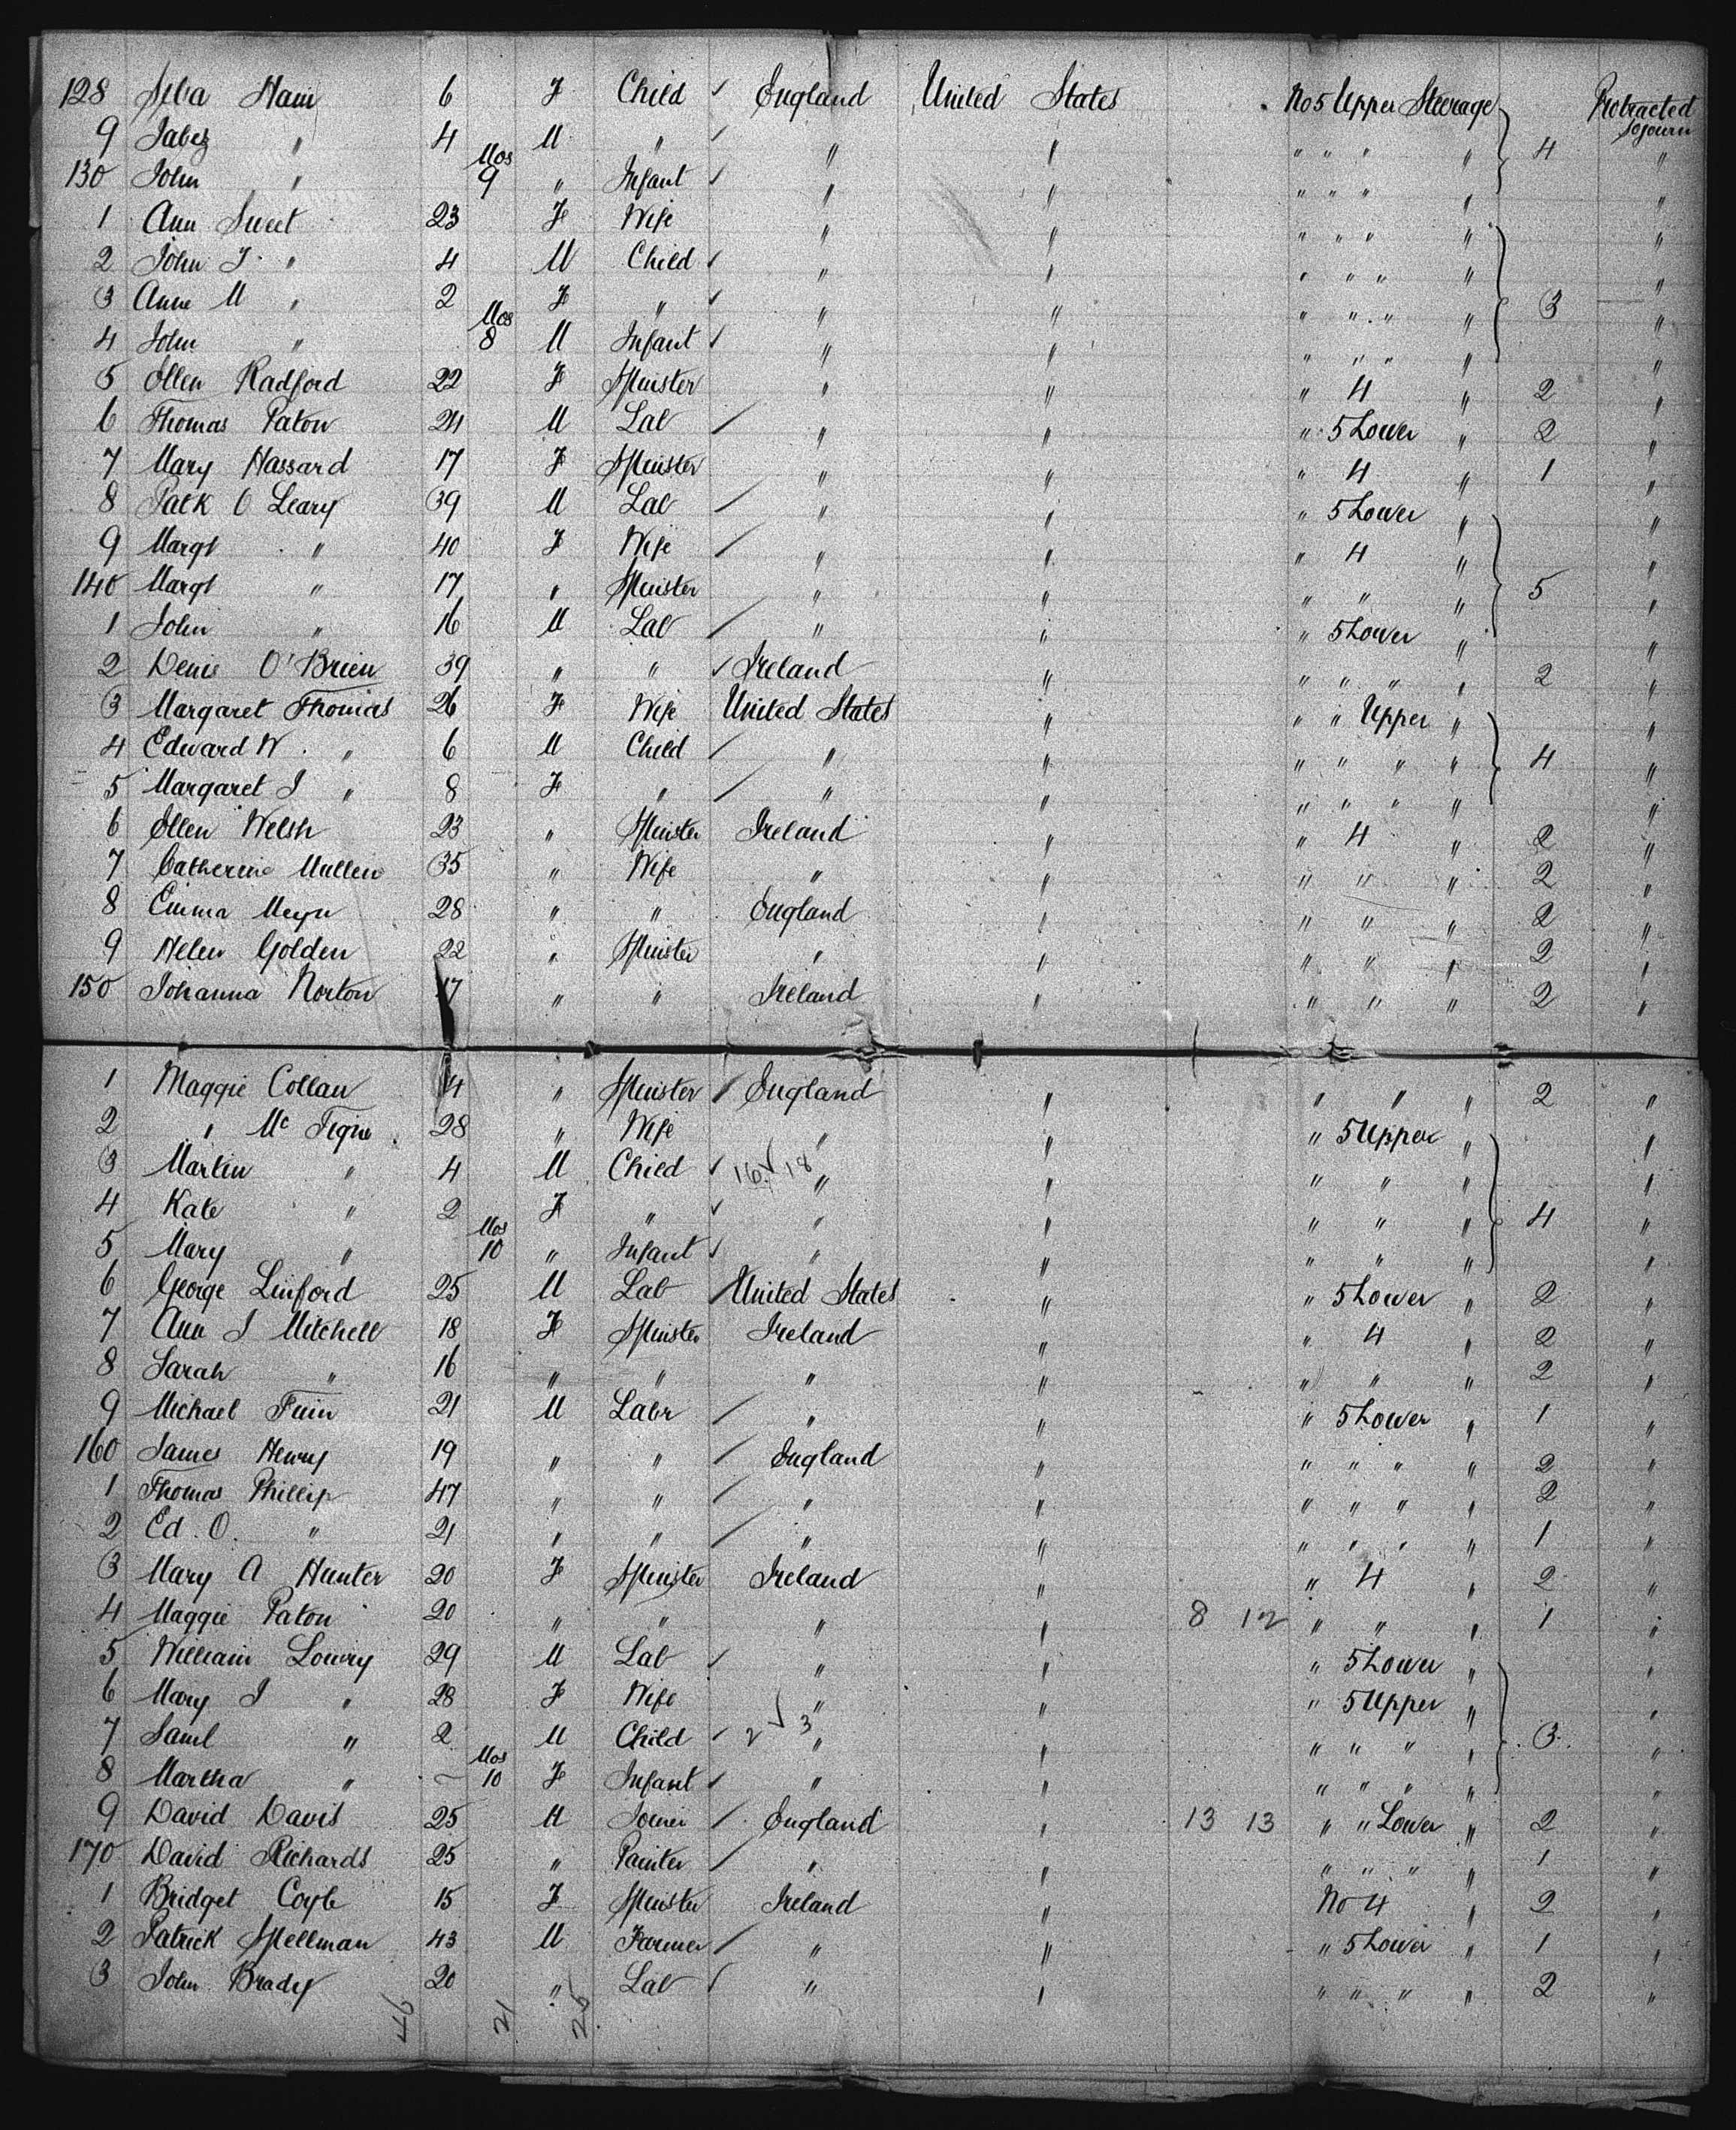 128 Selba Ham 6 F Child ✓ England United States No 5 Upper Steerage Protracted Sojourn
9 Jabez " 4 M " ✓ " " " " " " 4 "
130 John " Mos 9 " Infant ✓ " " " " " " "
1 Ann Sweet 23 F Wife " " " " " " "
2 John J. " 4 M Child ✓ " " " " " " "
3 Anne M " 2 F " ✓ " " " " " " 3 "
4 John " Mos 8 M Infant ✓ " " " " " " "
5 Ellen Radford 22 F Spinster " " " 4 " 2 "
6 Thomas Paton 24 M Lab / " " " 5 Lower " 2 "
7 Mary Hassard 17 F Spinster " " " 4 " 1 "
8 Patk O Leary 39 M Lab / " " " 5 Lower " "
9 Margt " 40 F Wife / " " " 4 " "
140 Margt " 17 " Spinster " " " " " 5 "
1 John " 16 M Lab / " " " 5 Lower " "
2 Denis O'Brien 39 " " ✓ Ireland " " " " " 2 "
3 Margaret Thomas 26 F Wife United States " " " Upper " "
4 Edward W. " 6 M Child / " " " " " " 4 "
5 Margaret J " 8 F " / " " " " " " "
6 Ellen Welsh 23 " Spinster Ireland " " 4 " 2 "
7 Catherine Mullen 35 " Wife " " " " " 2 "
8 Emma 28 " " England " " " " 2 "
9 Helen Golden 22 " Spinster " " " " " 2 "
150 Johanna Norton 17 " " Ireland " " " " 2 "
1 Maggie Collan 4 " Spinster / England " " " " 2 "
2 " Mc Tigue 28 " Wife " " " 5 Upper " "
3 Martin " 4 M Child ✓ 16 ✓ 18 " " " " " "
4 Kate " 2 F " ✓ " " " " " 4 "
5 Mary " Mos 10 " Infant ✓ " " " " " "
6 George Linford 25 M Lab / United States " " 5 Lower " 2 "
7 Ann J Mitchell 18 F Spinster Ireland " " 4 " 2 "
8 Sarah " 16 " " " " " " " 2 "
9 Michael 21 M Labr / " " " 5 Lower " 1 "
160 James Henry 19 " " / England " " " " " 2 "
1 Thomas Phillip 47 " " / " " " " " " 2 "
2 Ed. O. " 21 " " / " " " " " " 1 "
3 Mary A Hunter 20 F Spinster Ireland " " 4 " 2 "
4 Maggie Paton 20 " " " " 8 12 " " " 1 "
5 William Lowry 29 M Lab ✓ " " " 5 Lower " "
6 Mary J " 28 F Wife " " " 5 Upper " "
7 Saml " 2 M Child ✓ 2 ✓ 3 " " " " " " 3 "
8 Martha " – Mos 10 F Infant ✓ " " " " " " "
9 David Davis 25 M Joiner / England " 13 13 " " Lower " 2 "
170 David Richards 25 " Painter / " " " " " " 1 "
1 Bridget Coyle 15 F Spinster Ireland " No 4 " 2 "
2 Patrick Spellman 43 M Farmer / " " " 5 Lower " 1 "
3 John Brady 20 " Lab ✓ " " " " " " 2 "
46 21 25